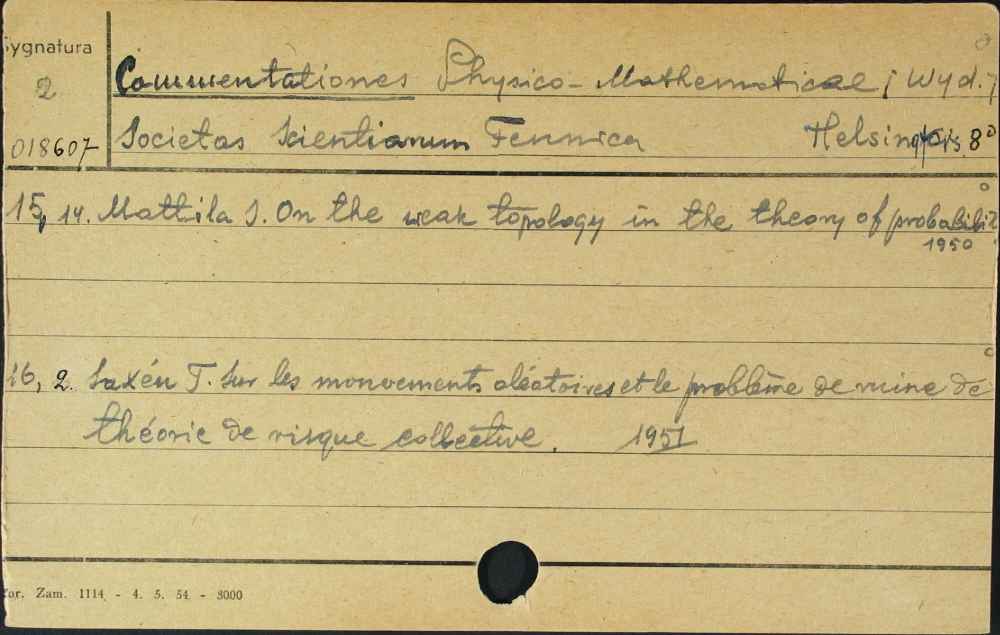 Sygnatura
2
018607
Commentationes Physico-Mathematicae; Wyd.;
Societas Scientiarum Fennica Helsingfors 8°
15, 14. Mattila S. On the weak topology in the theory of probabilit
1950
16, 2. Saxén T. Sur les monvements aléatoires et le problème de ruine de
théorie de risque collective. 1951
for. Zam. 1114 - 4. 5. 54 - 3000